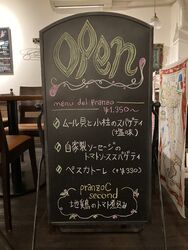 open
menu del Pranzo
¥1,350〜
ムール貝と小柱のスパゲティ
(塩味)
自家製ソーセージの
トマトソーススパゲティ
ペスカトーレ (+¥330)
pranzo C
second
地鶏のトマト煮込み